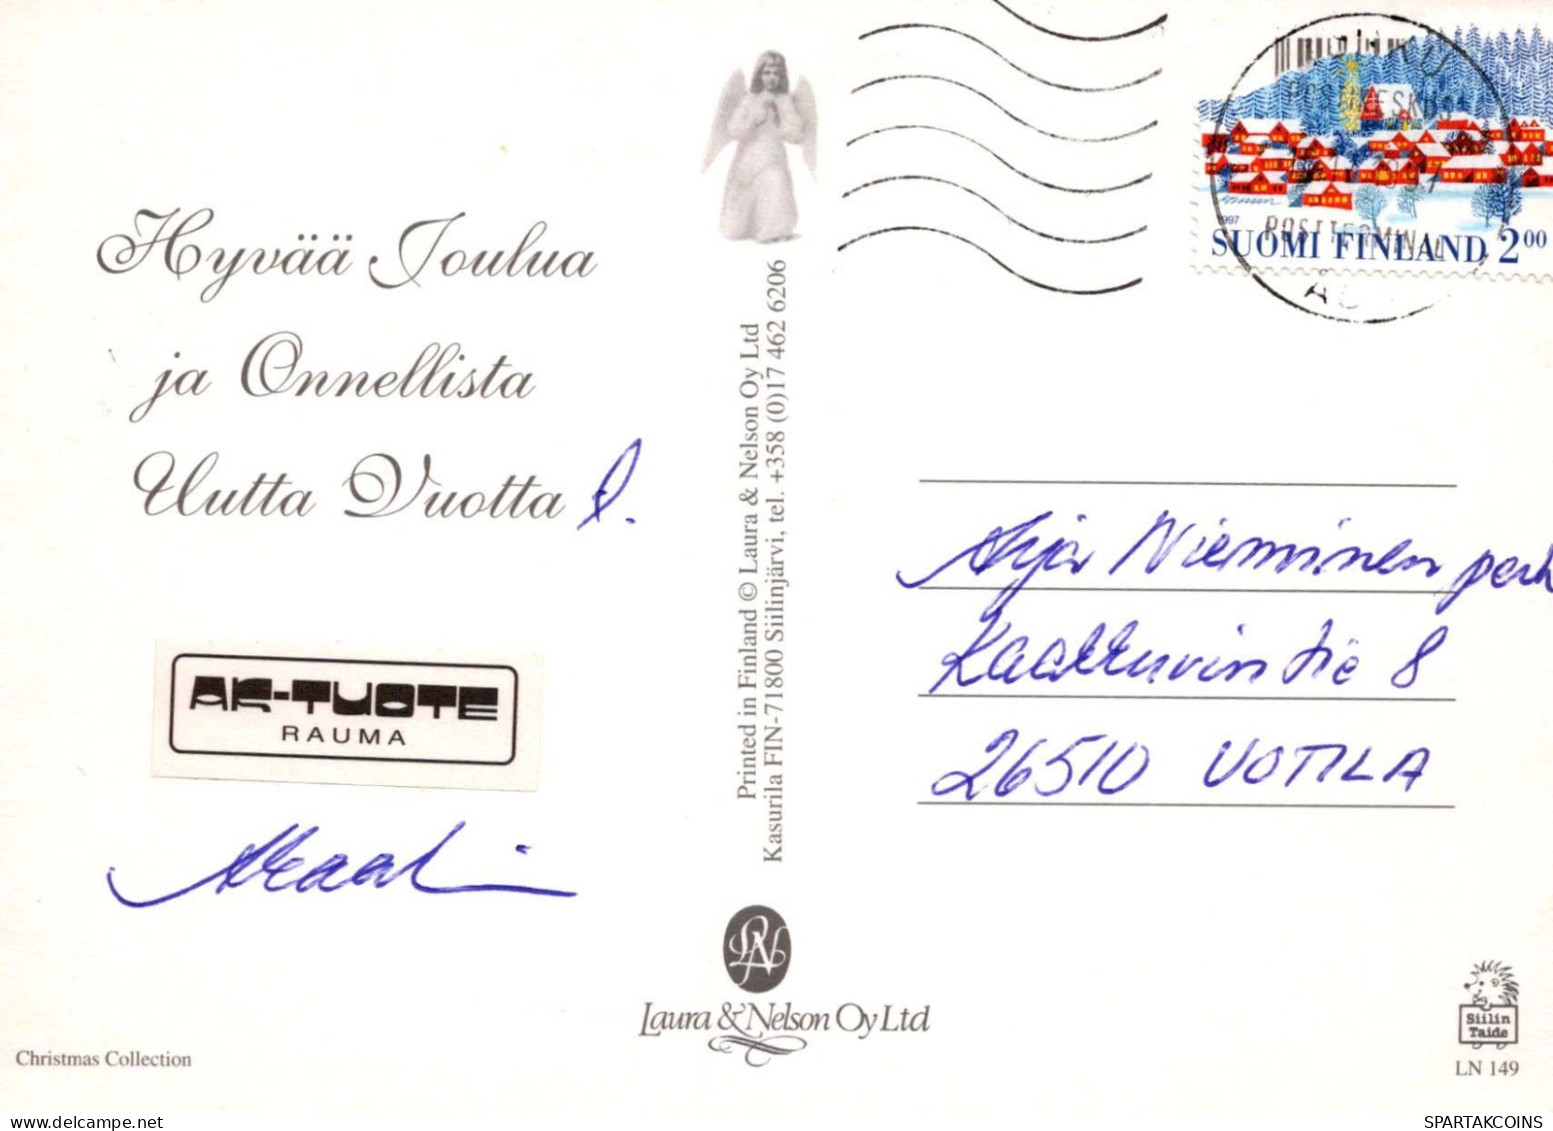 Hyvää Joulua
ja Onnellista
Uutta Vuotta
AK-TUOTE
RAUMA
Printed in Finland © Laura & Nelson Oy Ltd
Kasurila FIN-71800 Siilinjärvi, tel. +358 (0)17 462 6206
1997
SUOMI FINLAND 2.00
POSTITERMINAL
Arja Nieminen perh
26510 UOTILA
LN
Laura & Nelson Oy Ltd
Christmas Collection
Siilin
Taide
LN 149
SPARTAKCOINS